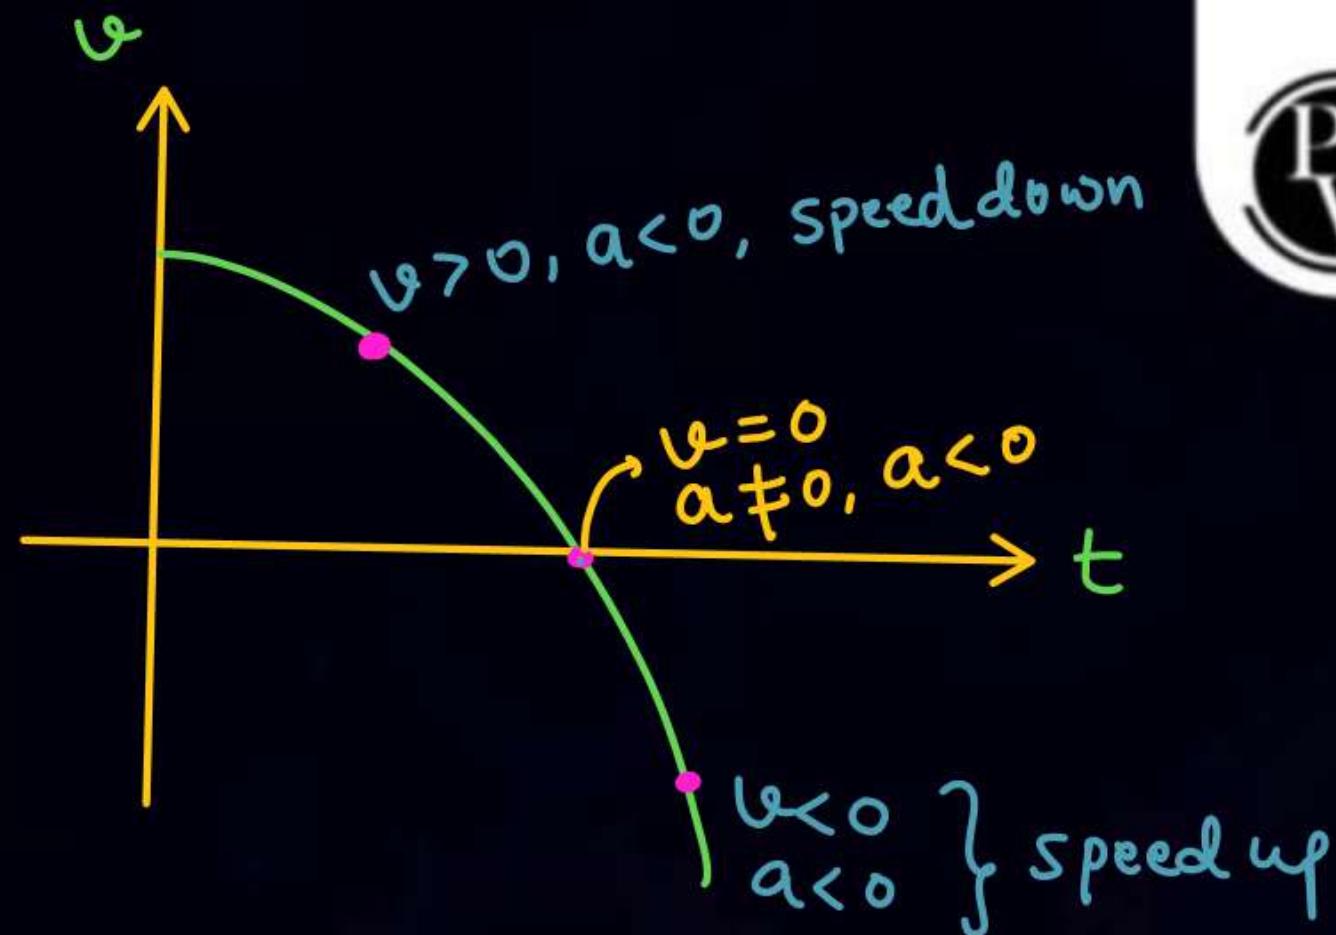 v
v>0, a<0, speed down
v=0
a≠0, a<0
t
v<0
a<0 } speed up
P